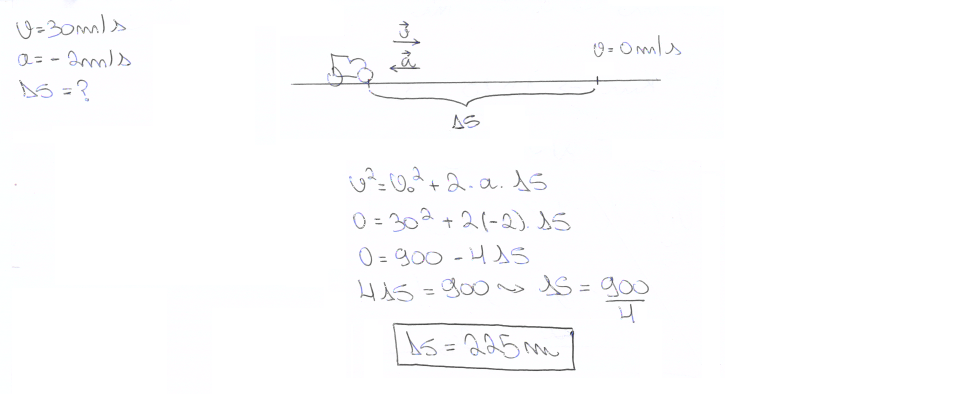 v=30m/s
a=-2m/s
ΔS=?
v⃗
a⃗
v=0m/s
ΔS
v²=v₀²+2·a·ΔS
0=30²+2(-2)·ΔS
0=900-4ΔS
4ΔS=900 ⇝ ΔS=900/4
ΔS=225m